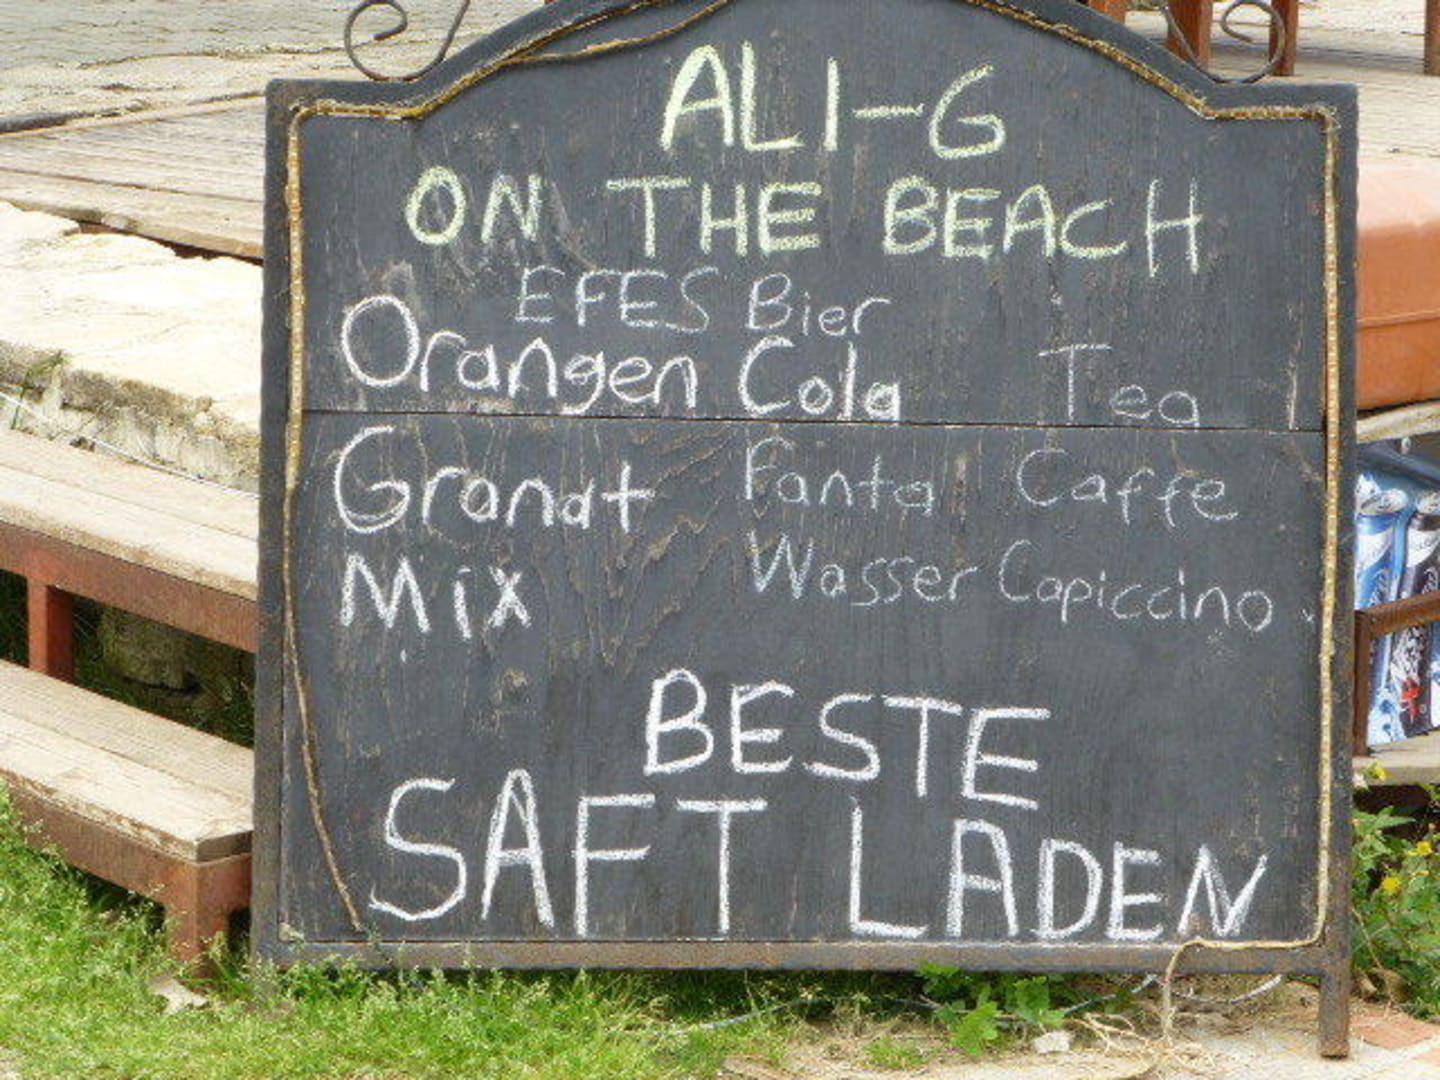 ALI-G
ON THE BEACH
EFES Bier
Orangen Cola Tea
Granat Fanta Caffe
Mix Wasser Capiccino
BESTE
SAFT LADEN